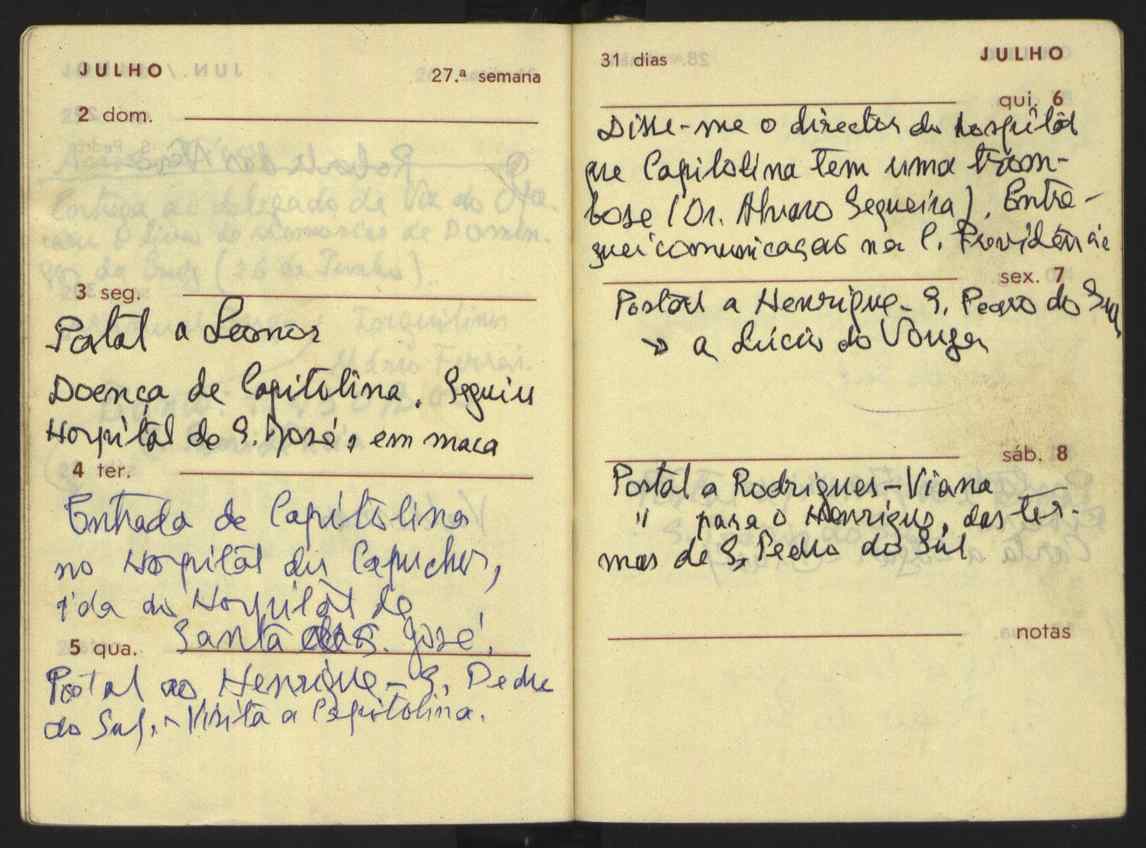 JULHO
27.ª semana
2 dom.
3 seg.
Postal a Leonor
Doença de Capitolina. Seguiu
Hospital de S. José, em maca
4 ter.
Entrada de Capitolina
no Hospital dos Capuchos,
ida do Hospital de
Santa S. José.
5 qua.
Postal ao Henrique - S. Pedro
do Sul. Visita a Capitolina.
31 dias
JULHO
qui. 6
Disse-me o director do hospital
que Capitolina tem uma trom-
bose (Dr. Alvaro Sequeira). Entre-
guei comunicação na C. Providência
sex. 7
Postal a Henrique - S. Pedro do Sul
" a Lúcio do Vouga
sáb. 8
Postal a Rodrigues - Viana
" para o Henrique, das ter-
mas de S. Pedro do Sul
notas